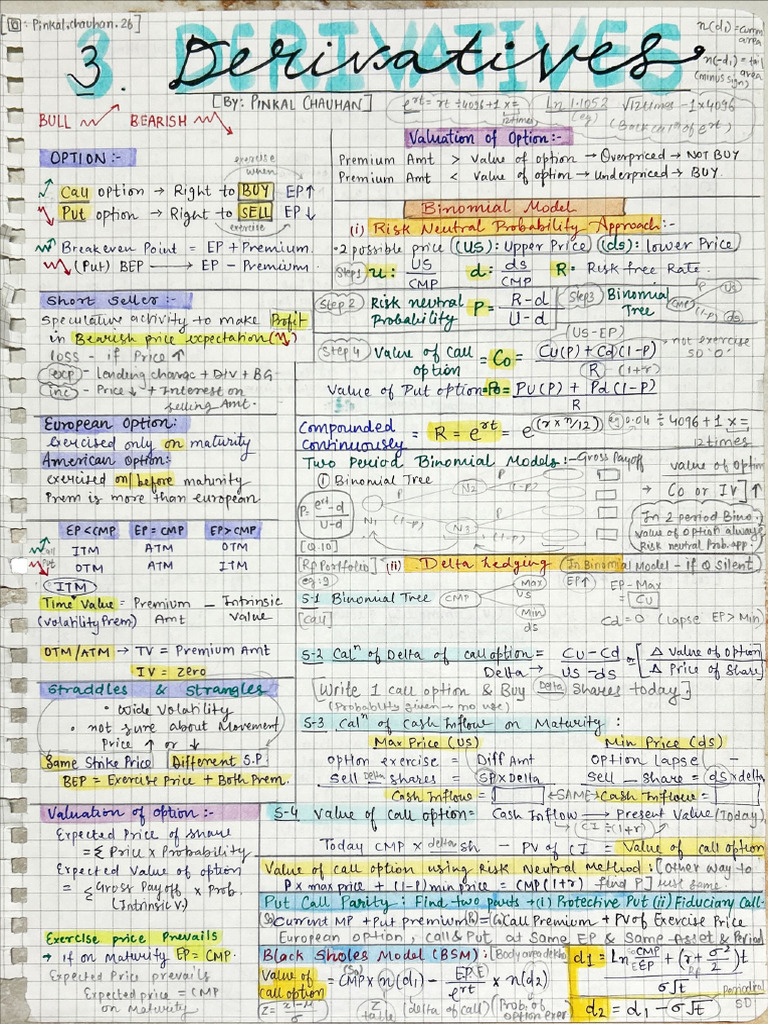 [Pinkal.chauhan.26]
DERIVATIVES
3. Derivatives
n(d1) = curve area
n(-d1) = tail area
(minus sign)
[BY: PINKAL CHAUHAN]
e^rt = rt ÷ 4096 + 1 x = 12 times
Ln 1.1052 √12 times - 1 x 4096
(eg)
BULL BEARISH
OPTION :-
exercise when
Call option → Right to BUY EP↑
Put option → Right to SELL EP↓
exercise
Breakeven Point = EP + Premium.
(Put) BEP → EP - Premium
Short Seller :-
Speculative activity to make Profit
in Bearish price expectation
loss - if Price ↑
exp - lending charge + Div + BG
inc - Price↓ + Interest on
selling Amt.
European Option:
Exercised only on maturity
American Option:
exercised on/before maturity
Prem is more than european
EP < CMP EP = CMP EP > CMP
Call ITM ATM OTM
Put OTM ATM ITM
ITM
Time Value = Premium - Intrinsic
(Volatility Prem) Amt Value
OTM/ATM → TV = Premium Amt
IV = zero
Straddles & Strangles
• Wide Volatility
• not sure about Movement
Price ↑ or ↓
Same Strike Price Different S.P
BEP = Exercise Price + Both Prem.
Valuation of option :-
Expected Price of share
= Σ Price x Probability
Expected Value of option
= Σ Gross Pay off x Prob.
(Intrinsic V.)
Exercise price Prevails
→ if on Maturity EP = CMP.
Expected Price prevails
Expected price = CMP
on Maturity
Valuation of Option :-
Premium Amt > Value of option → Overpriced → NOT BUY
Premium Amt < Value of option → Underpriced → BUY.
Binomial Model
(i) Risk Neutral Probability Approach :-
• 2 possible price (US): Upper Price (ds): lower Price
Step 1 u: US/CMP d: ds/CMP R = Risk free Rate.
Step 2 Risk neutral Probability P = R-d/U-d
Step 3 Binomial Tree CMP P US (1-P) ds
(US-EP)
→ not exercise so '0'
Step 4 Value of Call option = Co = Cu(P) + Cd(1-P)/R (1+r)
Value of Put option = Po = PU(P) + Pd(1-P)/R
Compounded Continuously = R = e^rt = e^(r x n/12) eg 0.04 ÷ 4096 + 1 x = 12 times
Two Period Binomial Models :- Gross Payoff
① Binomial Tree
P = e^rt - d/U-d
N1 N2 N3
P (1-P) P (1-P) P (1-P)
[Q.10]
value of option
→ Co or IV ↑
In 2 period Bino.
value of option always
Risk neutral Prob. app.
[Rf Portfolio] (ii) Delta Hedging (In Binomial Model - if Q silent)
eg.9
S-1 Binomial Tree CMP Max US Min ds
EP↑ EP-Max = Cu
[call] Cd = 0 (lapse EP > Min)
S-2 Calⁿ of Delta of call option = Cu-Cd/US-ds or [Δ Value of Option/Δ Price of Share]
Delta →
[Write 1 call option & Buy Delta shares today]
(Probability given → no use)
S-3 Calⁿ of Cash Inflow on Maturity :
Max Price (US) Min Price (ds)
option exercise = Diff Amt Option lapse -
Sell Delta shares = SP x Delta Sell - share = ds x delta
Cash Inflow = ← SAME → Cash Inflow =
S-4 Value of call option = Cash Inflow → Present Value (Today)
→ (CI ÷ (1+r))
Today CMP x delta sh - PV of CI = Value of call option
Value of call option using Risk Neutral Method : [other way to find P]
P x max price + (1-P) min price = CMP (1+r) rest same.
Put Call Parity : Find two parts → (i) Protective Put (ii) Fiduciary Call-
(S) Current MP + Put premium (P) = (C) Call Premium + PV of Exercise Price
European option, call & Put at Same EP & Same Asset & Period
Black Sholes Model (BSM) : [Body area dekho]
Value of call option = CMP (So) x n(d1) - EP (E)/e^rt x n(d2)
Z = x-μ/σ Z table (delta of call) (Prob. of option exer)
d1 = Ln CMP/EP + (r + σ²/2) t / σ√t
Rf
d2 = d1 - σ√t
periodical SD